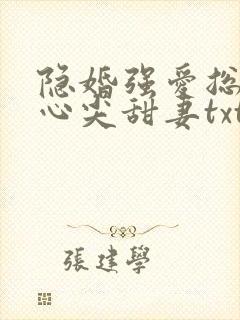 隐婚强爱总
心尖甜妻txt
張建學